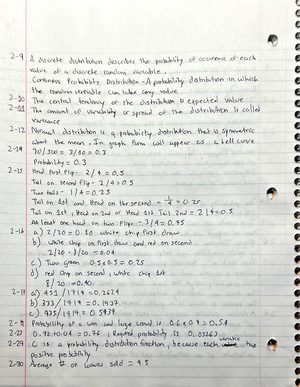 2-9 A discrete distribution describes the probability of occurence of each
value of a discrete random variable.
Continous Probability Distribution - A probability distribution in which
the random variable can take any value
2-10 The central tendency of the distribution is expected value
2-11 The amount of variability or spread of the distribution is called
variance
2-12 Normal distribution is a probability distribution that is symmetric
about the mean. In graph form will appear as a bell curve
2-14 90/300 = 3/10 = 0.3
Probability = 0.3
2-15 Head first flip - 2/4 = 0.5
Tail on second flip - 2/4 = 0.5
Two tails - 1/4 = 0.25
Tail on 1st and Head on the second = 1/4 = 0.25
Tail on 1st, Head on 2nd or Head 1st Tail 2nd = 2/4 = 0.5
At least one head on two flips - 3/4 = 0.75
2-16 a) 2/20 = 0.10 white chip first draw
b) white chip on first draw and red on second
2/20 · 8/20 = 0.04
c) Two green 0.5 x 0.5 = 0.25
d) red chip on second, white chip 1st
8/20 = 0.40
a) 451/1719 = 0.2624
b) 333/1719 = 0.1937
c) 935/1719 = 0.5439
Probability of a win and large crowd is 0.6 x 0.9 = 0.54
C is a probability distribution function, because each variable has
positive probability
2-30 Average # of loaves sold = 9.5